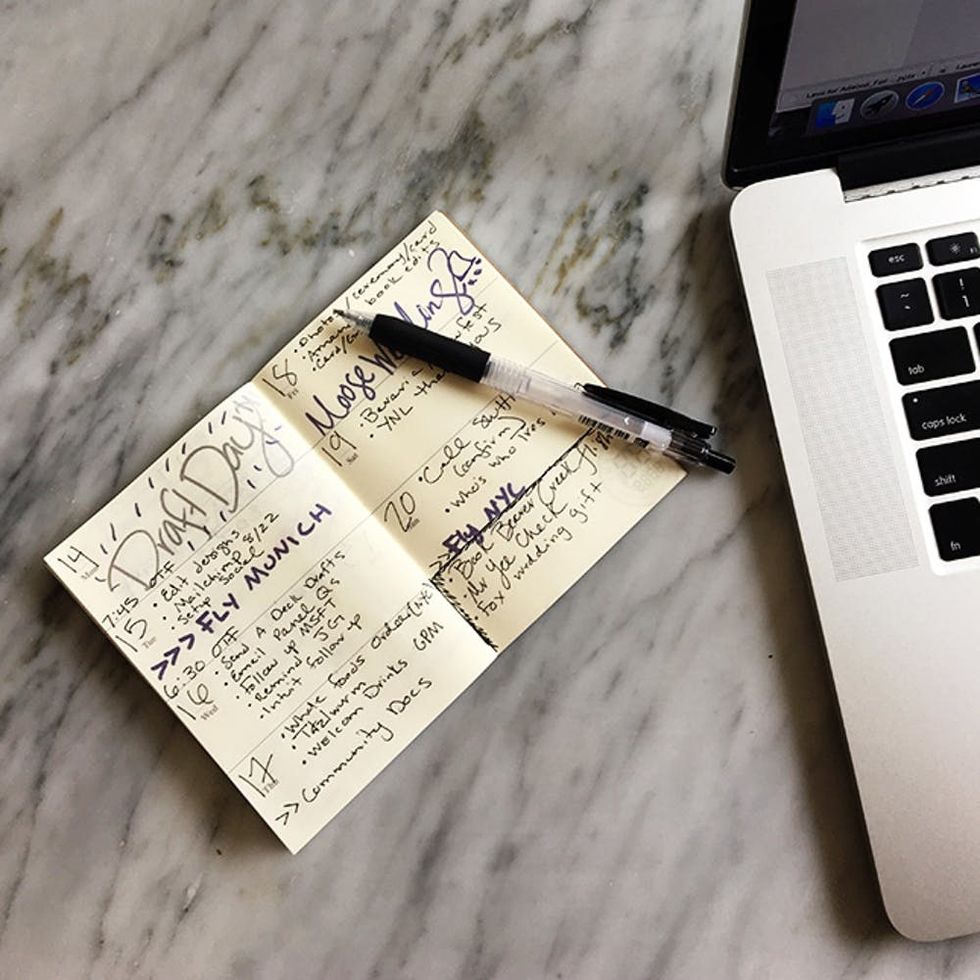 14
Mon
Draft Day
7:45 OTF
• Edit designs
• Mailchimp 8/22
• Setup Social
15
Tue
>>> FLY MUNICH
6:30 OTF
• Send A Deck Draft
• Email Panel Qs
• Follow up MSFT
• Remind JGT
• Intuit follow up
16
Wed
• Whole foods order
• Welcom Drinks 6PM
17
Thu
>> Community Docs
• Photos/ceremony/card
book edits
18
Fri
Moose
19
Sat
• YNL
20
Sun
• Call
• Confirm
• Who's who
>> Fly NYC
• Book Beaver Creek
• Mr Yee Check
• Fox wedding gift
esc
~
`
!
1
tab
caps lock
shift
fn